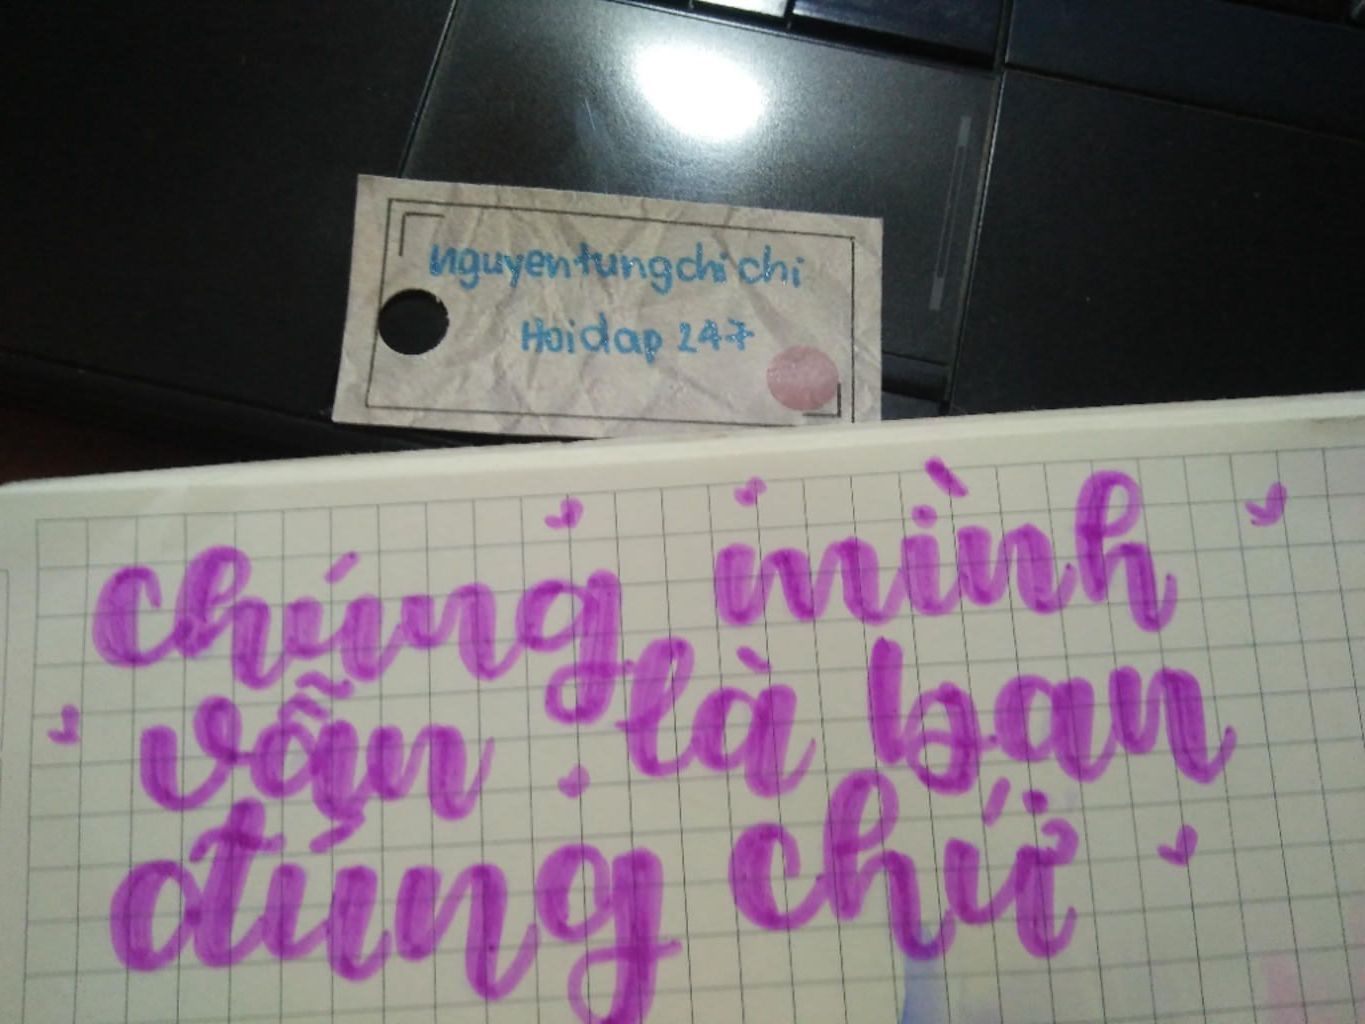 nguyentungchi chi
Hoidap 247
chúng mình
vẫn là bạn
đúng chứ